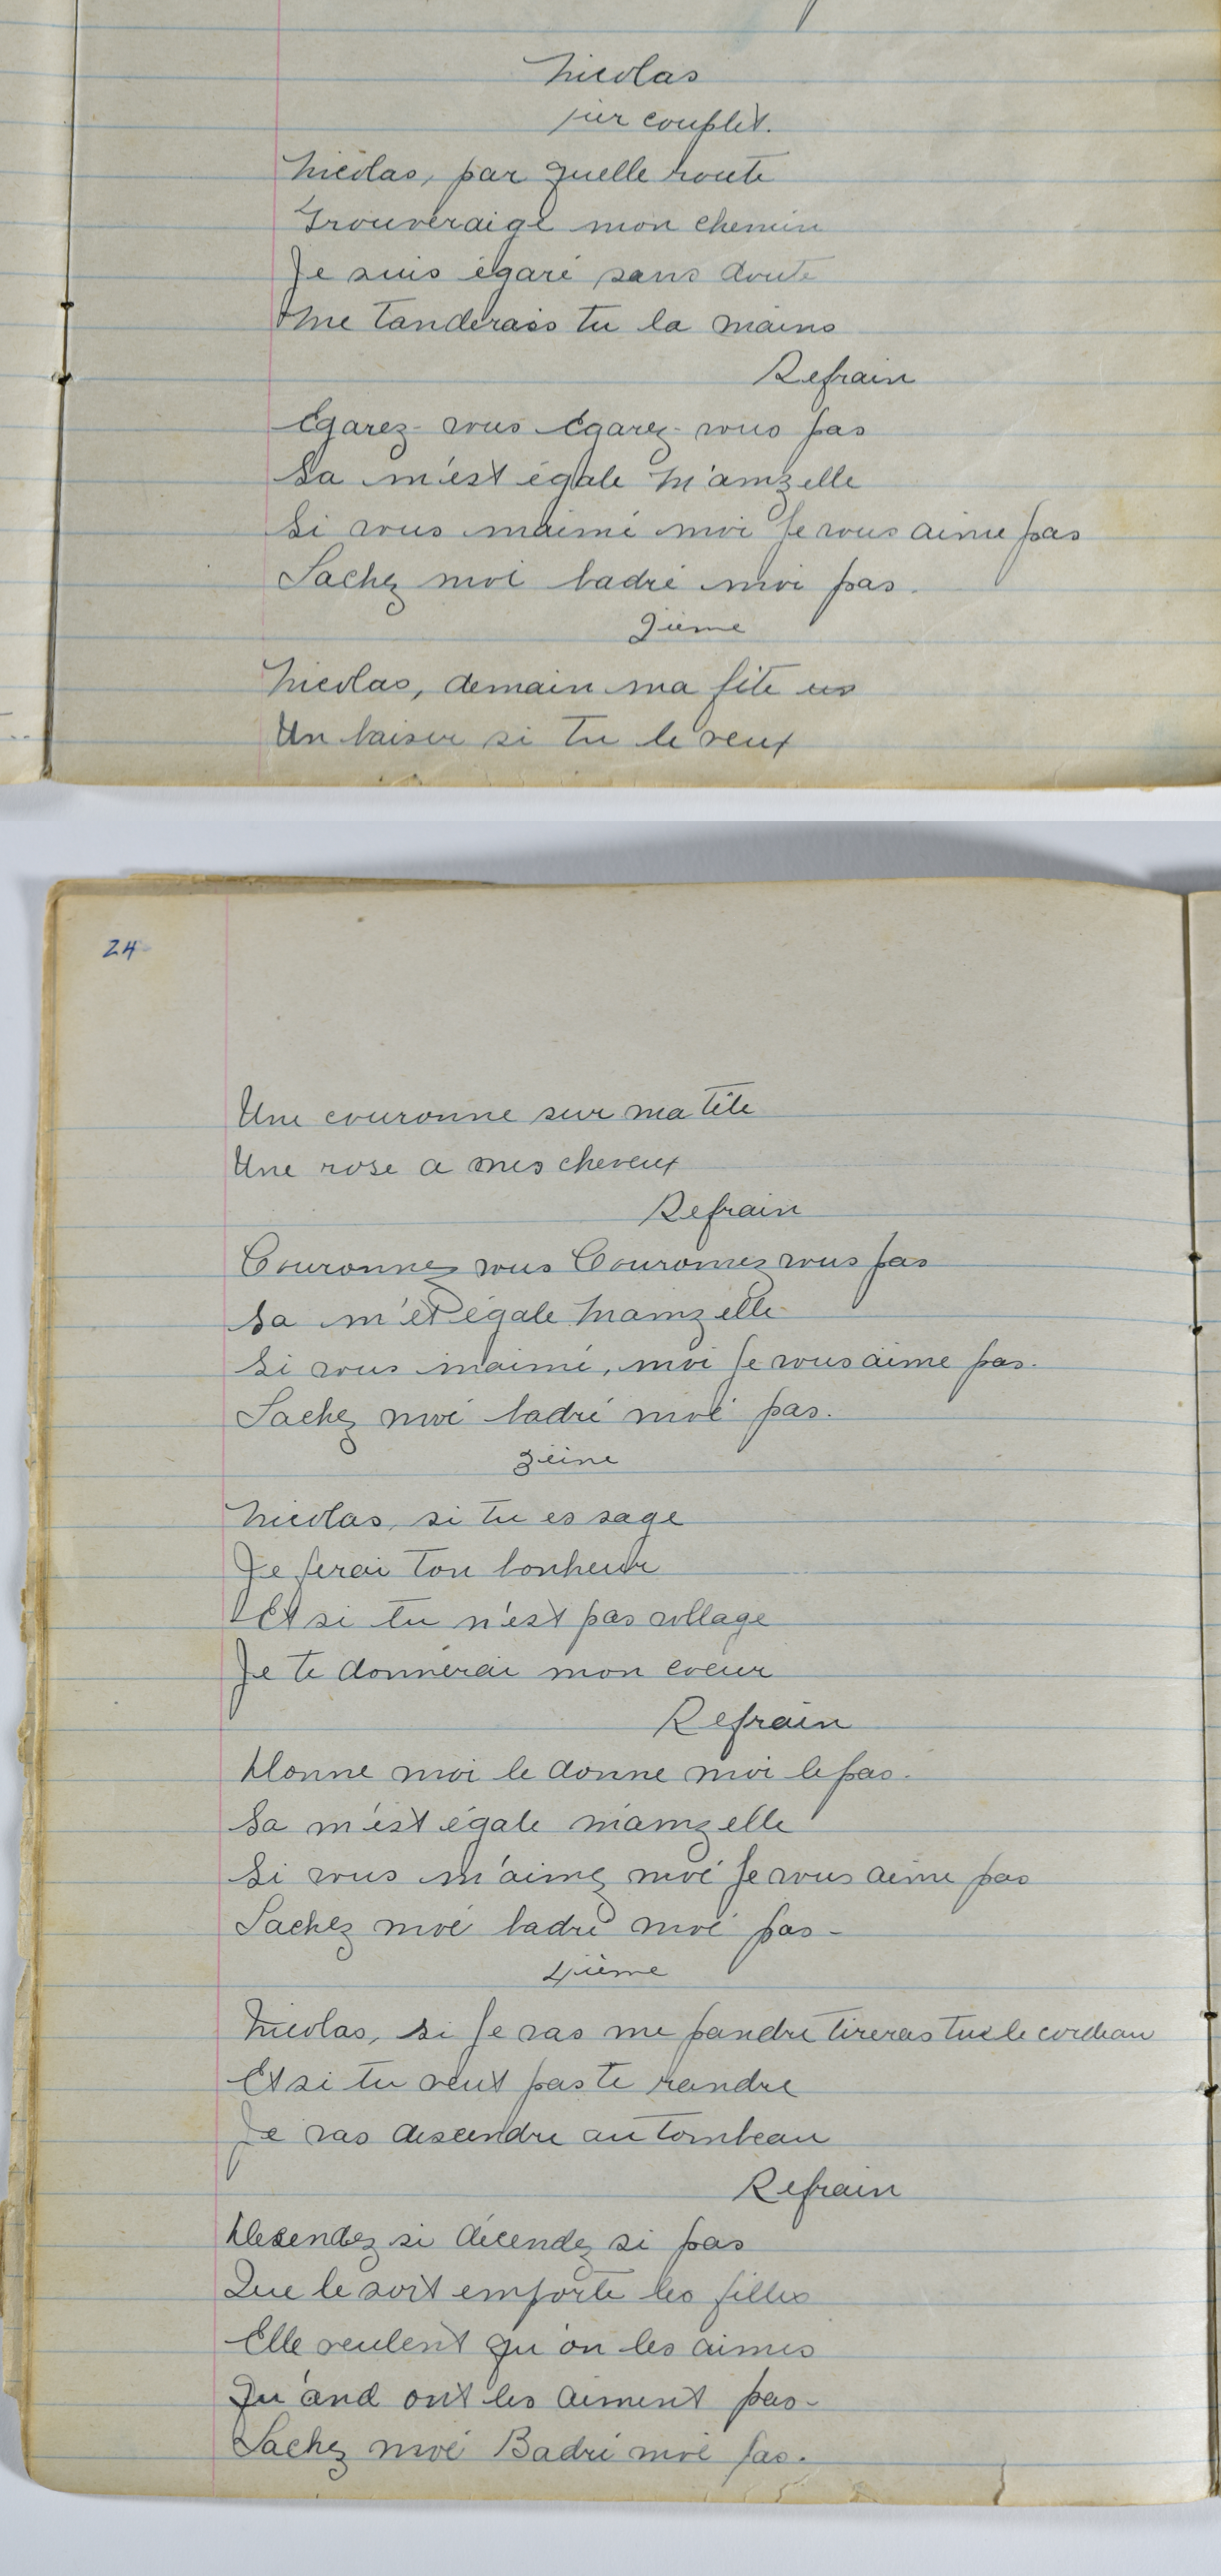 Nicolas
1ier couplèt.
Nicolas, par quelle route
Trouveraige mon chemin
Je suis égaré sans doute
Me tanderais tu la mains
Refrain
Egarez-vous Egarez-vous pas
Sa m'est égale M'amzelle
Si vous m'aimé moi Je vous aime pas
Lachez moé badré moi pas.
2ieme
Nicolas, demain ma fête es
Un baiser si tu le veux
24
Une couronne sur ma tête
Une rose a mes cheveux
Refrain
Couronnez vous Couronnez vous pas
Sa m'et égale Mamzelle
Si vous m'aimé, moi Je vous aime pas.
Lachez moé badré moé pas.
3éine
Nicolas, si tu es sage
Je ferai ton bonheur
Et si tu n'est pas vollage
Je te donnerai mon coeur
Refrain
Donne moi le donne moi le pas.
Sa m'est égale m'amzelle
Si vous m'aimez moé Je vous aime pas
Lachez moé badré moé pas-
4ième
Nicolas, si Je vas me pandre tireras tu le cordeau
Et si tu veut pas te randre
Je vas descendre au tombeau
Refrain
Desendez si décendez si pas
Que le soit emporte les filles
Elle veulent qu'on les aimes
Qu'and ont les aiment pas-
Lachez moé Badré moé pas.